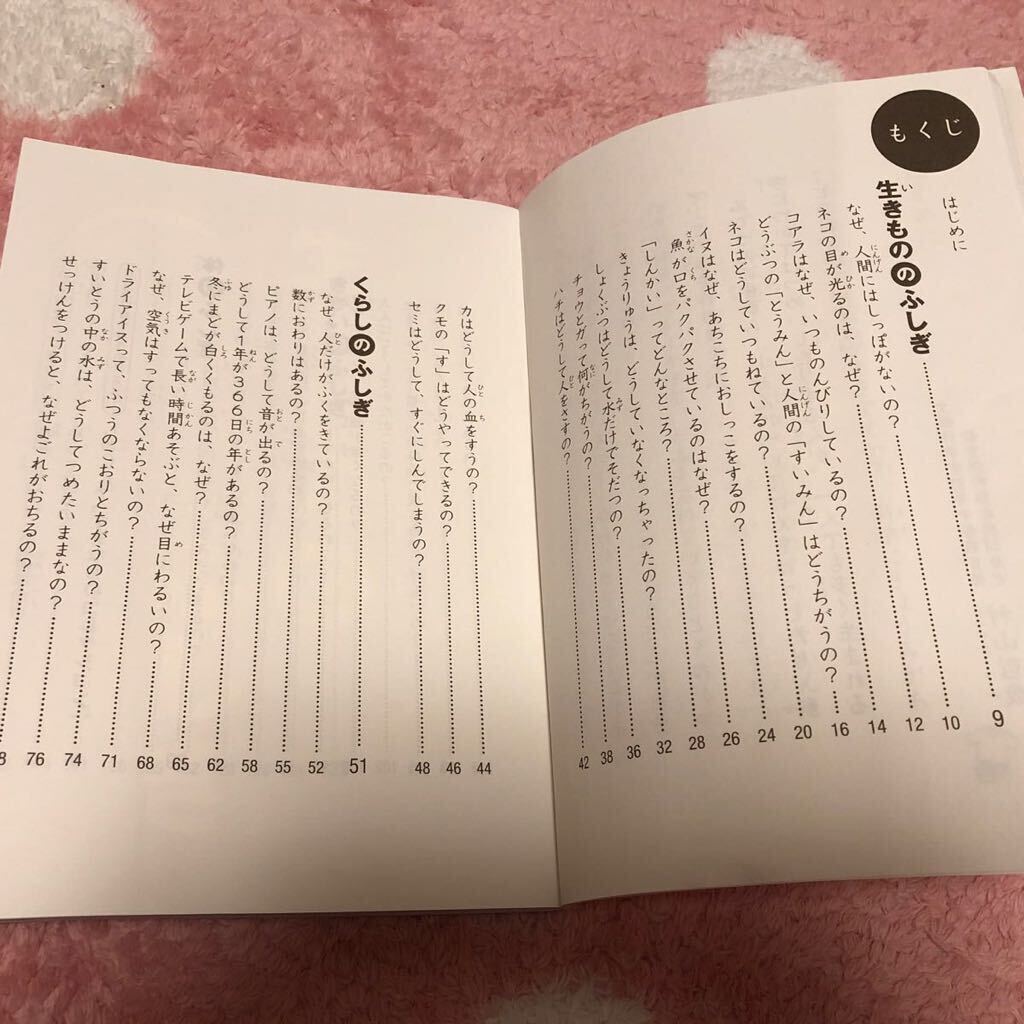 もくじ
はじめに
生きもののふしぎ 9
なぜ、人間にはしっぽがないの? 10
ネコの目が光るのは、なぜ? 12
コアラはなぜ、いつものんびりしているの? 14
どうぶつの「とうみん」と人間の「すいみん」はどうちがうの? 16
ネコはどうしていつもねているの? 20
イヌはなぜ、あちこちにおしっこをするの? 24
魚が口をパクパクさせているのはなぜ? 26
「しんかい」ってどんなところ? 28
きょうりゅうは、どうしていなくなっちゃったの? 32
しょくぶつはどうして水だけでそだつの? 36
チョウとガって何がちがうの? 38
ハチはどうして人をさすの? 42
カはどうして人の血をすうの? 44
クモの「す」はどうやってできるの? 46
セミはどうして、すぐにしんでしまうの? 48
くらしのふしぎ 51
なぜ、人だけがふくをきているの? 52
数におわりはあるの? 55
ピアノは、どうして音が出るの? 58
どうして1年が366日の年があるの? 62
冬にまどが白くくもるのは、なぜ? 65
テレビゲームで長い時間あそぶと、なぜ目にわるいの? 68
なぜ、空気はすってもなくならないの? 71
ドライアイスって、ふつうのこおりとちがうの? 74
すいとうの中の水は、どうしてつめたいままなの? 76
せっけんをつけると、なぜよごれがおちるの? 8